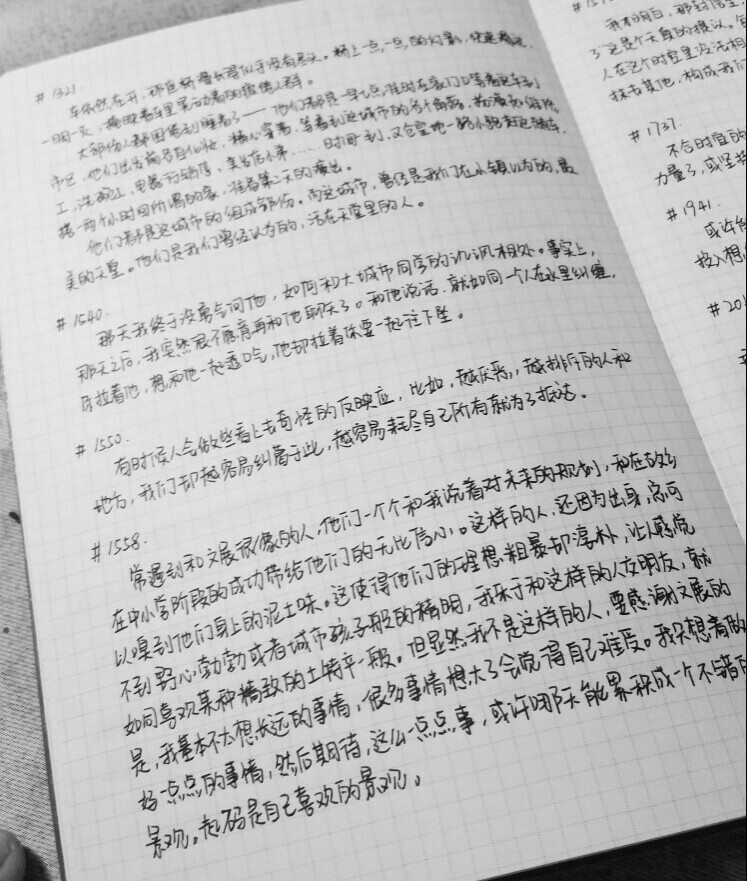 #1321.
车依然在开，那座桥漫长得似乎没有尽头。桥上一点一点的灯影，快速
一明一灭，掩映着车里晃动着的疲倦人群。
大部分人都困倦到睡着了——他们都是一早七点准时在家门口等着这车到
市区，他们出发前各自化妆、精心穿着，等着到这城市的各个角落，扮演
工、洗碗工、电器行销售、美发店小弟……时间一到，又仓皇地一路小跑赶这辆车，
搭一两个小时回所谓的家，准备第二天的演出。
他们都是这城市的组成部份。而这城市，曾经是我们在小镇以为的，最
美的天堂。他们是我们曾经以为的，活在天堂里的人。
#1540.
那天我终于没勇气问他，如何和大城市同学的讥讽相处。事实上，
那天之后，我突然很不愿意再和他聊天了。和他说话，就如同一个人在水里纠缠，
你拉着他，想和他一起透口气，他却拉着你要一起往下坠。
#1550.
有时候人会做些看上去奇怪的反映应，比如，越厌恶，越排斥的人和
地方，我们却越容易纠葛于此，越容易耗尽自己所有就为了抵达。
#1558.
常遇到和文展很像的人，他们一个个和我说着对未来的规划，和在故乡
在中小学阶段的成功带给他们的无比信心。这样的人，还因为出身，总可
以嗅到他们身上的泥土味。这使得他们的理想粗暴却淳朴，让人感觉
不到野心勃勃或者城市孩子般的精明，我乐于和这样的人交朋友，就
如同喜欢某种精致的土特产一般。但显然我不是这样的人，要感谢文展的
是，我基本不太想长远的事情，很多事情想大了会觉得自己难受。我只想着做
好一点点的事情，然后期待，这么一点点事，或许哪天能累积成一个不错的
景观。起码是自己喜欢的景观。
我才明白，那封信里，
人在这个时空里没法相
抹去其他，构成我们
#1737.
不合时宜的
力量了，或坚持
#1941.
或许
投入想